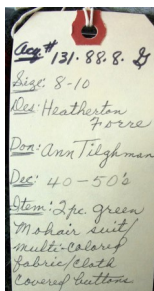 Acq# 131.88.8. G
Size: 8-10
Des: Heatherton
Forre
Don: Ann Tilghman
Dec: 40-50's
Item: 2pc. green
Mohair suit/
multi-colored
fabric/cloth
covered buttons